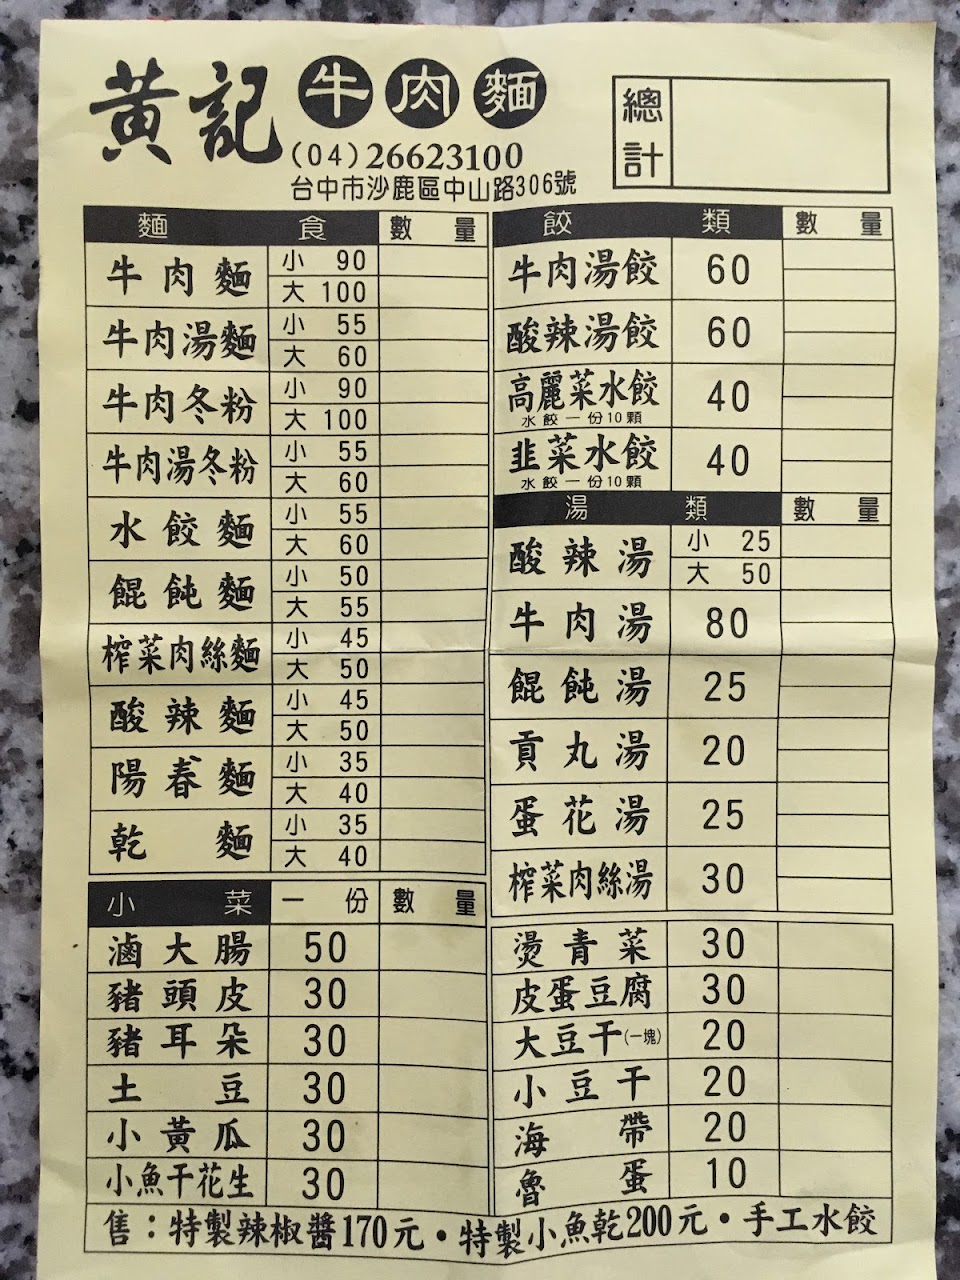 黃記牛肉麵
(04)26623100
台中市沙鹿區中山路306號
總計
麵食 數量
牛肉麵 小 90
大 100
牛肉湯麵 小 55
大 60
牛肉冬粉 小 90
大 100
牛肉湯冬粉 小 55
大 60
水餃麵 小 55
大 60
餛飩麵 小 50
大 55
榨菜肉絲麵 小 45
大 50
酸辣麵 小 45
大 50
陽春麵 小 35
大 40
乾麵 小 35
大 40
餃類 數量
牛肉湯餃 60
酸辣湯餃 60
高麗菜水餃 40
水餃一份10顆
韭菜水餃 40
水餃一份10顆
湯類 數量
酸辣湯 小 25
大 50
牛肉湯 80
餛飩湯 25
貢丸湯 20
蛋花湯 25
榨菜肉絲湯 30
小菜 一份 數量
滷大腸 50
豬頭皮 30
豬耳朵 30
土豆 30
小黃瓜 30
小魚干花生 30
燙青菜 30
皮蛋豆腐 30
大豆干(一塊) 20
小豆干 20
海帶 20
魯蛋 10
售：特製辣椒醬170元・特製小魚乾200元・手工水餃